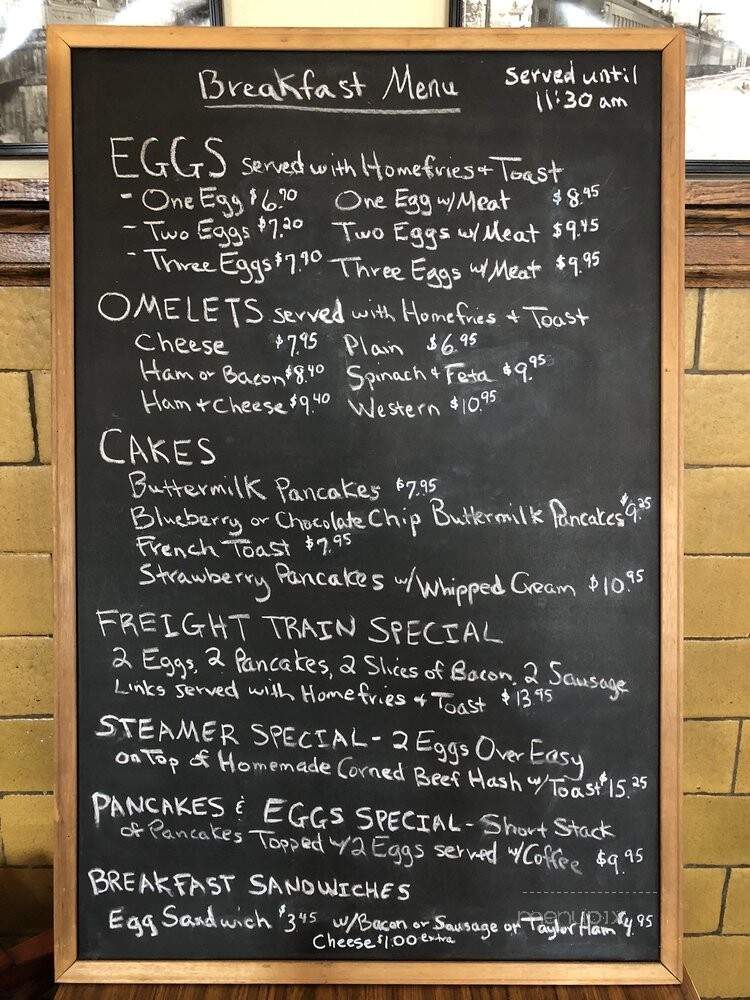 Breakfast Menu served until
11:30 am
EGGS served with Homefries + Toast
- One Egg $6.90 One Egg w/Meat $8.45
- Two Eggs $7.20 Two Eggs w/Meat $9.45
- Three Eggs $7.90 Three Eggs w/Meat $9.95
OMELETS served with Homefries + Toast
Cheese $7.95 Plain $6.95
Ham or Bacon $8.40 Spinach + Feta $9.95
Ham + Cheese $9.40 Western $10.95
CAKES
Buttermilk Pancakes $7.95
Blueberry or Chocolate Chip Buttermilk Pancakes $9.25
French Toast $7.95
Strawberry Pancakes w/Whipped Cream $10.95
FREIGHT TRAIN SPECIAL
2 Eggs, 2 Pancakes, 2 Slices of Bacon, 2 Sausage
Links served with Homefries + Toast $13.95
STEAMER SPECIAL - 2 Eggs Over Easy
on Top of Homemade Corned Beef Hash w/Toast $15.25
PANCAKES & EGGS SPECIAL - Short Stack
of Pancakes Topped w/2 Eggs served w/Coffee $9.95
BREAKFAST SANDWICHES
Egg Sandwich $3.45 w/Bacon or Sausage or Taylor Ham $4.95
Cheese $1.00 extra